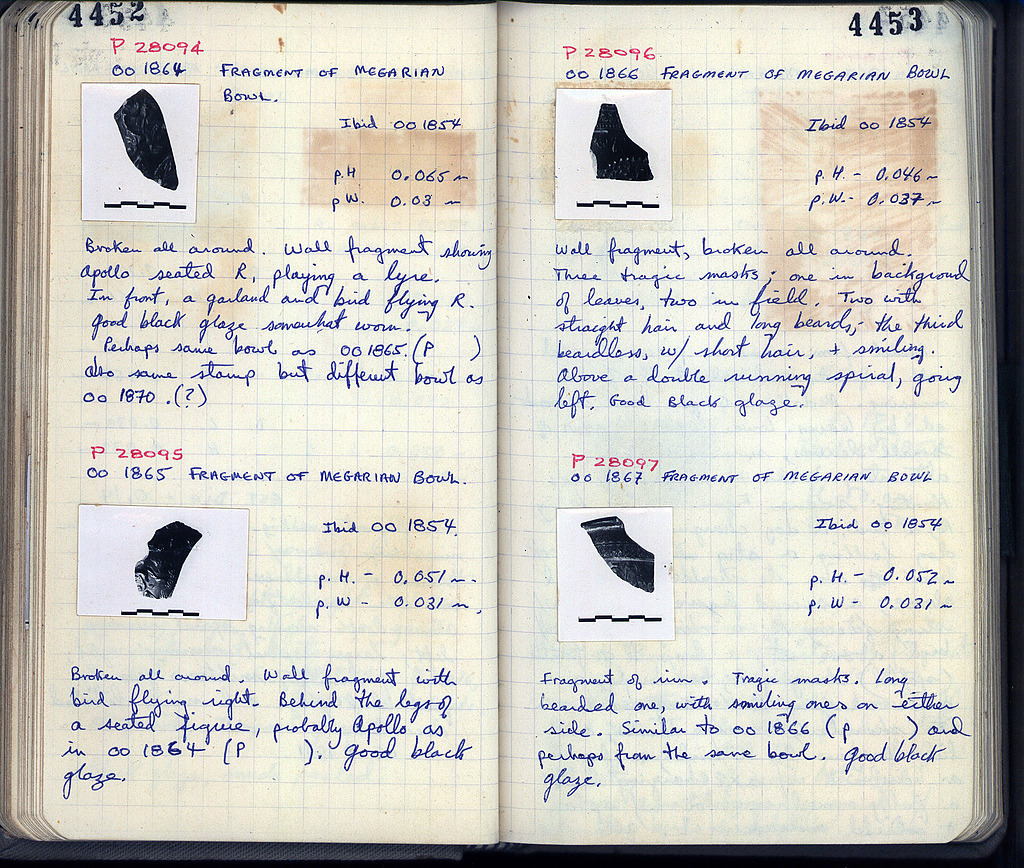 4452
P 28094
OO 1864 FRAGMENT OF MEGARIAN
BOWL.
Ibid OO 1854
p.H 0.065 m
p W. 0.03 m
Broken all around. Wall fragment showing
Apollo seated R, playing a lyre.
In front, a garland and bird flying R.
Good black glaze somewhat worn.
Perhaps same bowl as OO 1865. (P )
Also same stamp but different bowl as
OO 1870. (?)
P 28095
OO 1865 FRAGMENT OF MEGARIAN BOWL.
Ibid OO 1854.
p. H. - 0.051 m.
p. W - 0.031 m.
Broken all around. Wall fragment with
bird flying right. Behind the legs of
a seated figure, probably Apollo as
in OO 1864 (P ). Good black
glaze.
4453
P 28096
OO 1866 FRAGMENT OF MEGARIAN BOWL
Ibid OO 1854
p. H. - 0.046 m
p. W. - 0.037 m
Wall fragment, broken all around.
Three tragic masks; one in background
of leaves, two in field. Two with
straight hair and long beards; the third
beardless, w/ short hair, + smiling.
Above a double running spiral, going
left. Good Black glaze.
P 28097
OO 1867 FRAGMENT OF MEGARIAN BOWL
Ibid OO 1854
p. H. - 0.052 m
p. W - 0.031 m
Fragment of rim. Tragic masks. Long
bearded one, with smiling ones on either
side. Similar to OO 1866 (P ) and
perhaps from the same bowl. Good black
glaze.